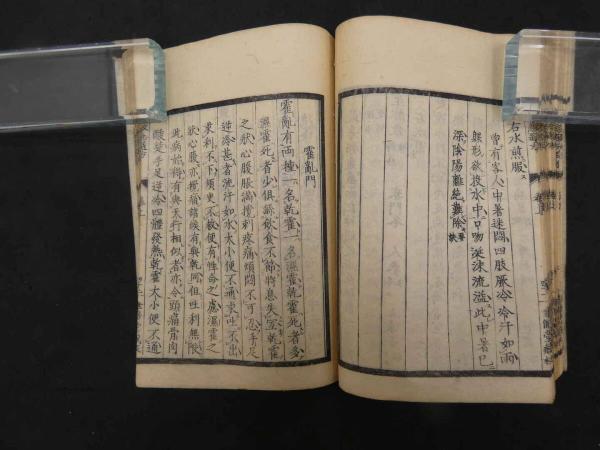 右水煎服
曾有客人中暑迷悶四肢厥冷冷汗如雨
無形欲投水中口吻涎沫流溢此中暑已
深陰陽離絶難除
霍亂門
霍亂有両種一名乾霍一名濕霍乾霍死者多
濕霍死者少俱飲食不節將息失宜乾霍
之狀心腹脹滿攪刺疼痛煩悶不可忍手足
逆冷甚者流汗如水大小便不通求吐不出
求利不下須臾不救便有性命之慮濕霍之
狀心腹亦攪痛諸候有與乾同但吐利無限
此病始得有與天行相似者亦令頭痛骨肉
酸楚手足逆冷四體發熱乾霍大小便不通